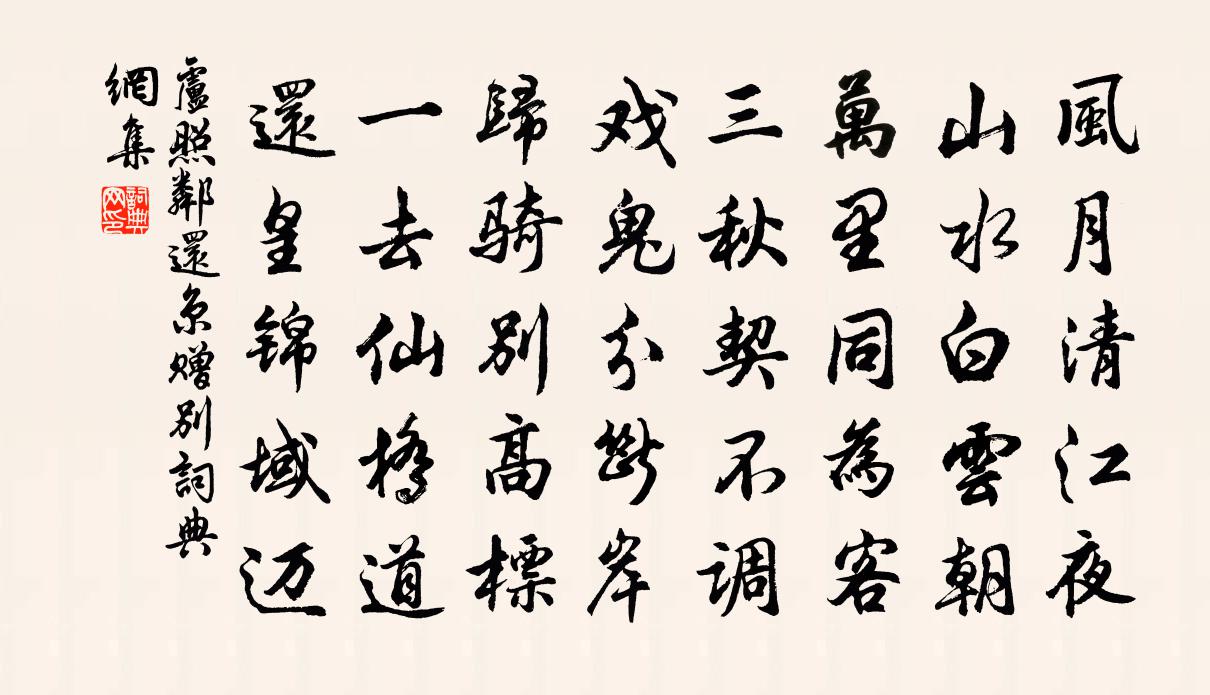 風月清江夜
山水白雲朝
萬里同為客
三秋契不调
戏鳧分斷岸
歸骑別高標
一去仙橋道
還皇锦域迈
盧照鄰還京贈別詞典
網集
詞典网印